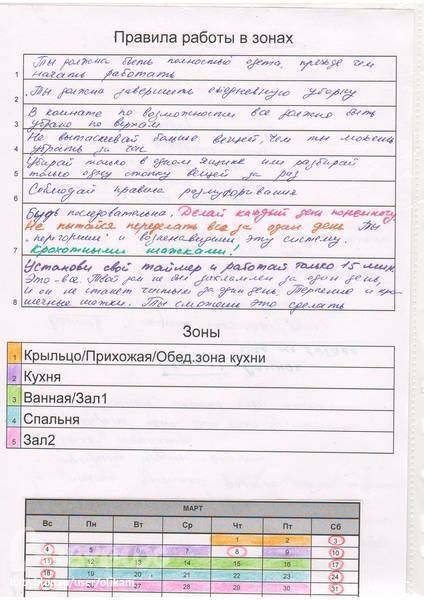 Правила работы в зонах
Ты должна быть полностью одета, прежде чем
1 начать работать
2 Ты должна завершить ежедневную уборку
В комнате по возможности все должно быть
3 убрано по верхам
Не вытаскивай больше вещей, чем ты можешь
4 убрать за час
Убирай только в одном ящике или разбирай
5 только одну стопку вещей за раз
6 Соблюдай правила размуфоривания
Будь последовательна. Делай каждый день понемногу
Не пытайся переделать все за один день Ты
"перегоришь" и возненавидишь эту систему.
7 Крохотными шажками!
Установи свой таймер и работай только 15 мин
Это все. Твой дом не был захламлен за один день,
и он не станет чистым за один день. Терпение и кро-
8 шечные шажки. Ты сможешь это сделать
Зоны
1 Крыльцо/Прихожая/Обед.зона кухни
2 Кухня
3 Ванная/Зал1
4 Спальня
5 Зал2
МАРТ
Вс Пн Вт Ср Чт Пт Сб
1 2 3
4 5 6 7 8 9 10
11 12 13 14 15 16 17
18 19 20 21 22 23 24
25 26 27 28 29 30 31